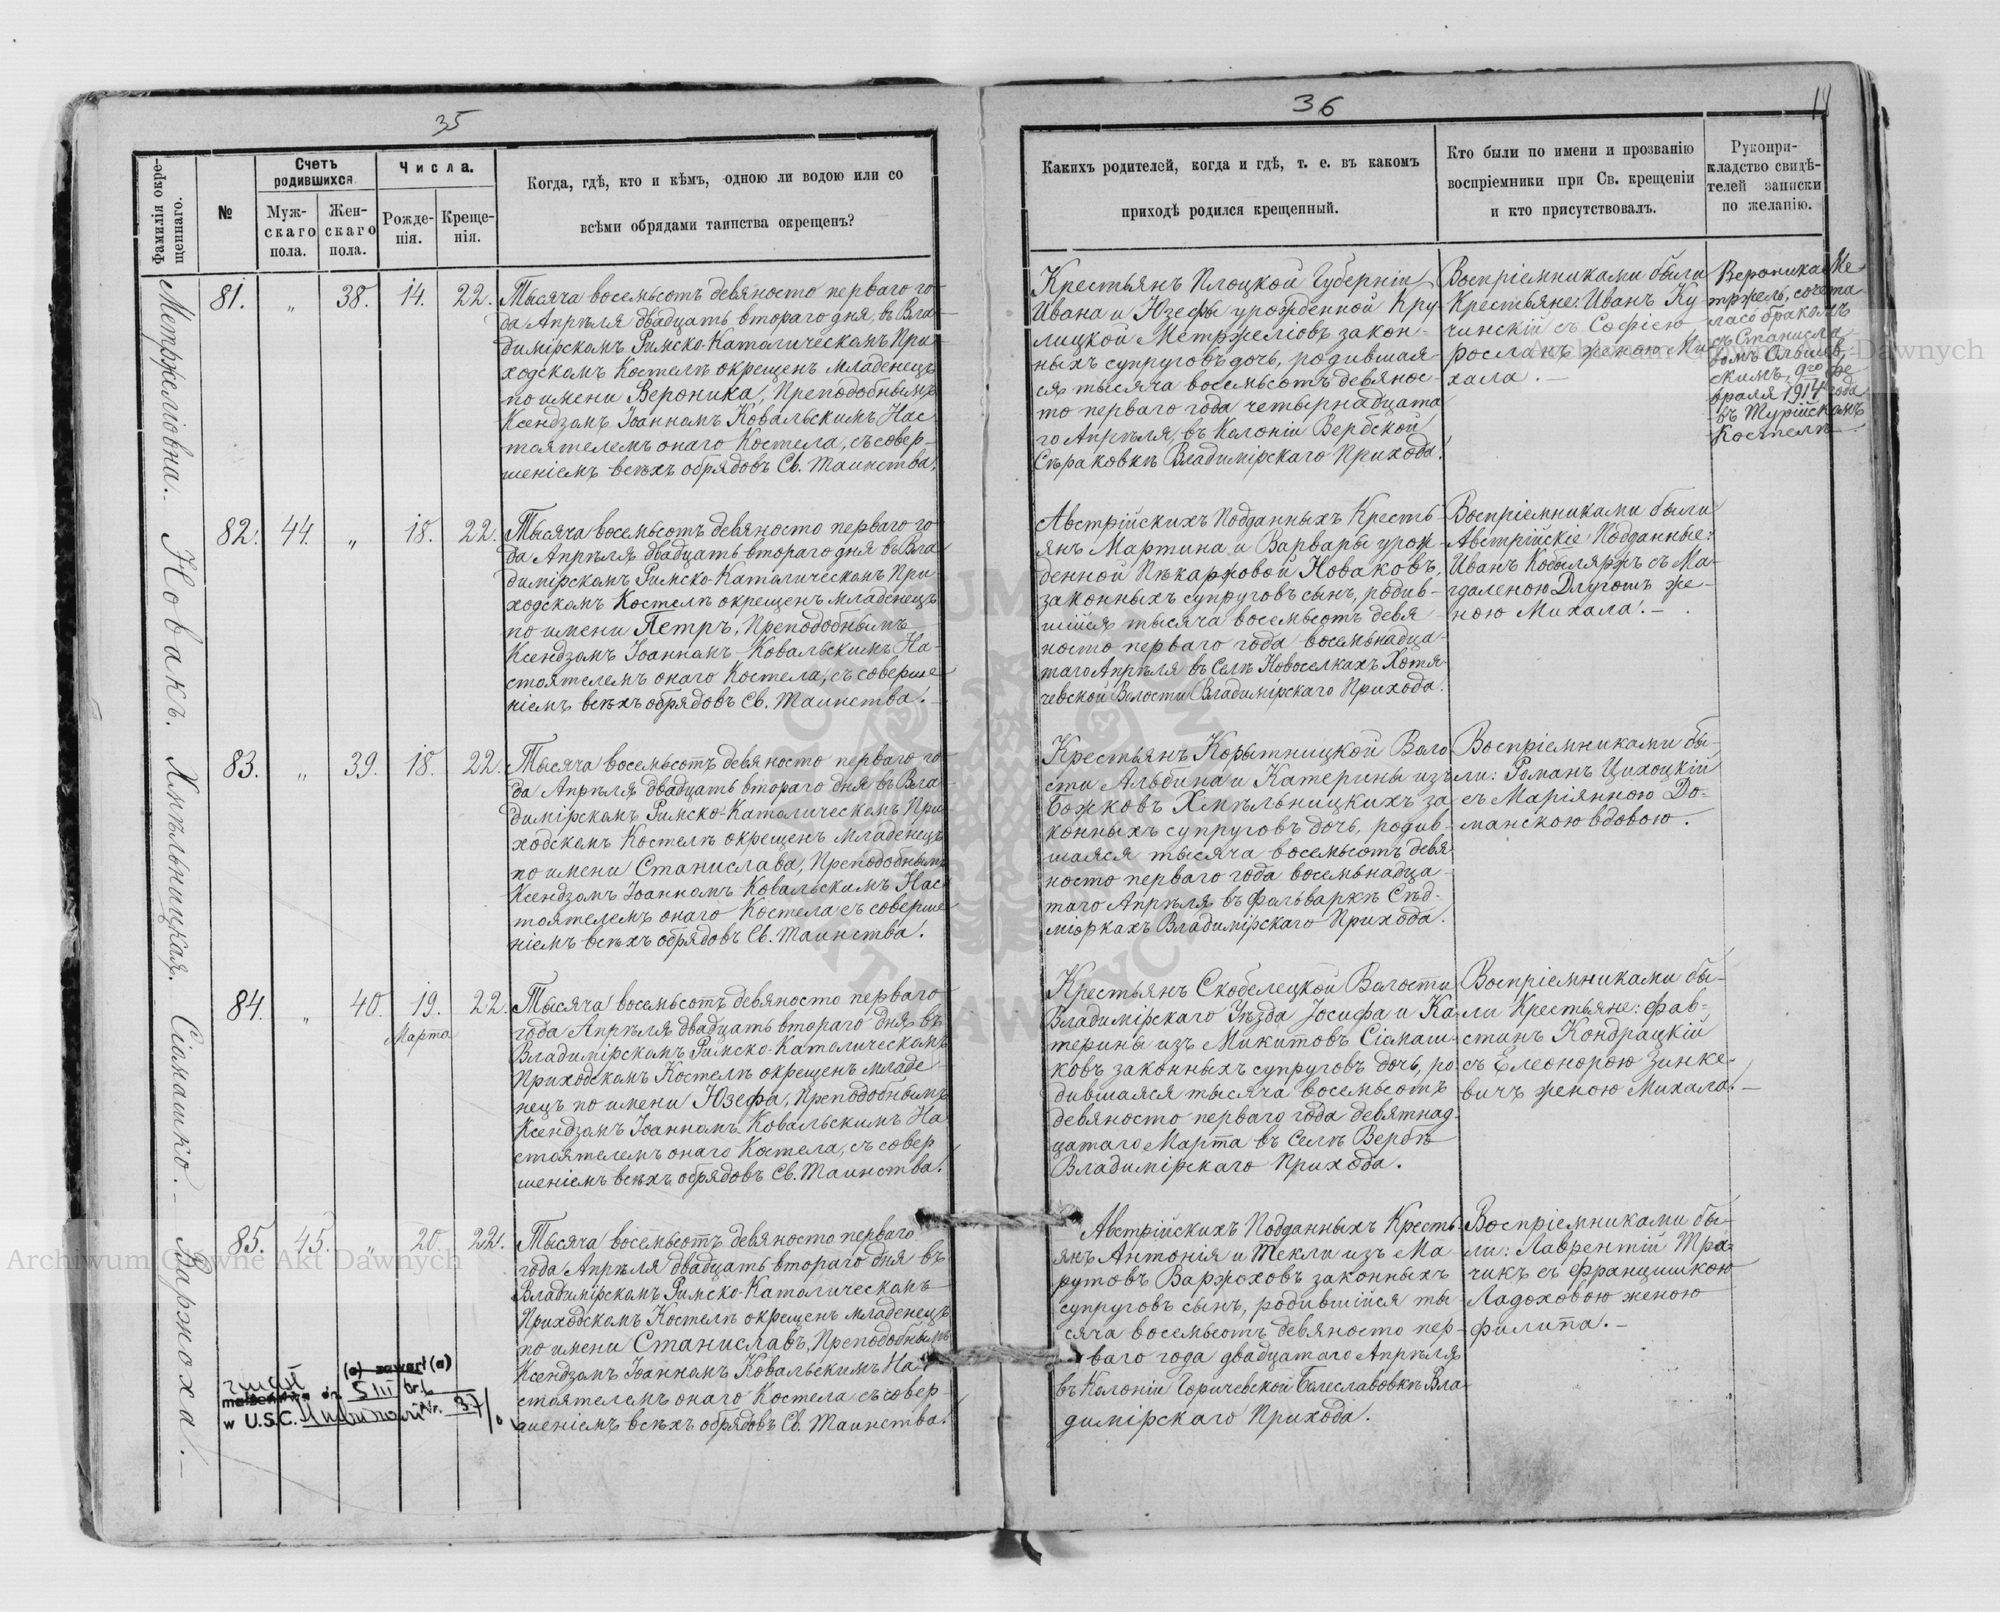 35
Фамилія окре-
щеннаго.
№
Счетъ
родившихся.
Муж-
скаго
пола.
Жен-
скаго
пола.
Числа.
Рожде-
нія.
Креще-
нія.
Когда, гдѣ, кто и кѣмъ, одною ли водою или со
всѣми обрядами таинства окрещенъ?
Метржеліовна.
81. „ 38. 14. 22.
Тысяча восемьсотъ девяносто перваго го-
да Апрѣля двадцать втораго дня, въ Вла-
димірскомъ Римско-Католическомъ При-
ходскомъ Костелѣ окрещенъ младенецъ
по имени Вероника, Преподобнымъ
Ксендзомъ Іоанномъ Ковальскимъ Нас-
тоятелемъ онаго Костела, съ совер-
шеніемъ всѣхъ обрядовъ Св. Таинства.
Новакъ.
82. 44. „ 18. 22.
Тысяча восемьсотъ девяносто перваго го-
да Апрѣля двадцать втораго дня въ Вла-
димірскомъ Римско-Католическомъ При-
ходскомъ Костелѣ окрещенъ младенецъ
по имени Петръ, Преподобнымъ
Ксендзомъ Іоанномъ Ковальскимъ На-
стоятелемъ онаго Костела, съ соверше-
ніемъ всѣхъ обрядовъ Св. Таинства.
Хмѣльницкая.
83. „ 39. 18. 22.
Тысяча восемьсотъ девяносто перваго го-
да Апрѣля двадцать втораго дня въ Вла-
димірскомъ Римско-Католическомъ При-
ходскомъ Костелѣ окрещенъ младенецъ
по имени Станислава, Преподобнымъ
Ксендзомъ Іоанномъ Ковальскимъ Нас-
тоятелемъ онаго Костела съ соверше-
ніемъ всѣхъ обрядовъ Св. Таинства.
Сіомашко.
84. „ 40. 19. 22.
Марта
Тысяча восемьсотъ девяносто перваго
года Апрѣля двадцать втораго дня въ
Владимірскомъ Римско-Католическомъ
Приходскомъ Костелѣ окрещенъ младе-
нецъ по имени Юзефа, Преподобнымъ
Ксендзомъ Іоанномъ Ковальскимъ На-
стоятелемъ онаго Костела, съ совер-
шеніемъ всѣхъ обрядовъ Св. Таинства.
Варжоха.
85. 45. „ 20. 22.
Тысяча восемьсотъ девяносто перваго
года Апрѣля двадцать втораго дня въ
Владимірскомъ Римско-Католическомъ
Приходскомъ Костелѣ окрещенъ младенецъ
по имени Станиславъ, Преподобнымъ
Ксендзомъ Іоанномъ Ковальскимъ На-
стоятелемъ онаго Костела съ совер-
шеніемъ всѣхъ обрядовъ Св. Таинства.
zmarł (a) zawarł (a)
małżeństwo dn. 5 III
w U.S.C. Nr. 37/
36
Какихъ родителей, когда и гдѣ, т. е. въ какомъ
приходѣ родился крещенный.
Кто были по имени и прозванію
воспріемники при Св. крещеніи
и кто присутствовалъ.
Рукопри-
кладство свидѣ-
телей записки
по желанію.
Крестьянъ Плоцкой Губерніи
Ивана и Юзефы урожденной Кру-
лицкой Метржеліовъ закон-
ныхъ супруговъ дочь, родившая-
ся тысяча восемьсотъ девянос-
то перваго года четырнадцата-
го Апрѣля, въ Колоніи Вербской
Сѣраковкѣ Владимірскаго Прихода.
Воспріемниками были
Крестьяне: Иванъ Ку-
чинскій съ Софіею
Росланъ женою Ми-
хала. —
Вероника Ме-
тржель, сочета-
лась бракомъ
съ Станисла-
вомъ
скимъ, 9го Фе-
враля 1914 года
въ Турійскомъ
Костелѣ.
Австрійскихъ Подданныхъ Кресть-
янъ Мартина и Варвары урож-
денной Пѣкаржовой Новаковъ,
законныхъ супруговъ сынъ, родив-
шійся тысяча восемьсотъ девя-
носто перваго года восемьнадца-
таго Апрѣля въ Селѣ Новоселкахъ Хотя-
чевской Волости Владимірскаго Прихода.
Воспріемниками были
Австрійскіе Подданные:
Иванъ Кобыляржъ съ Ма-
гдаленою Длугошъ же-
ною Михала. —
Крестьянъ Корытницкой Воло-
сти Альбина и Катерины изъ
Божковъ Хмѣльницкихъ за-
конныхъ супруговъ дочь, родив-
шаяся тысяча восемьсотъ девя-
носто перваго года восемьнадца-
таго Апрѣля въ фольваркѣ Сѣд-
міоркахъ Владимірскаго Прихода.
Воспріемниками бы-
ли: Романъ Цихоцкій
съ Маріянною До-
манскою вдовою.
Крестьянъ Скобелецкой Волости
Владимірскаго Уѣзда Іосифа и Ка-
терины изъ Микитовъ Сіомаш-
ковъ законныхъ супруговъ дочь, ро-
дившаяся тысяча восемьсотъ
девяносто перваго года девятнад-
цатаго Марта въ Селѣ Вербѣ
Владимірскаго Прихода.
Воспріемниками бы-
ли Крестьяне: Фав-
стинъ Кондрацкій
съ Елеонорою Зинке-
вичъ женою Михала. —
Австрійскихъ Подданныхъ Кресть-
янъ Антонія и Теклы изъ Ма-
рутовъ Варжоховъ законныхъ
супруговъ сынъ, родившійся ты-
сяча восемьсотъ девяносто пер-
ваго года двадцатаго Апрѣля
въ Колоніи Горичевской Болеславовкѣ Вла-
димірскаго Прихода.
Воспріемниками бы-
ли: Лаврентій Тра-
чикъ съ Францишкою
Ладоховою женою
Филипа. —
Archiwum Główne Akt Dawnych
Archiwum Główne Akt Dawnych